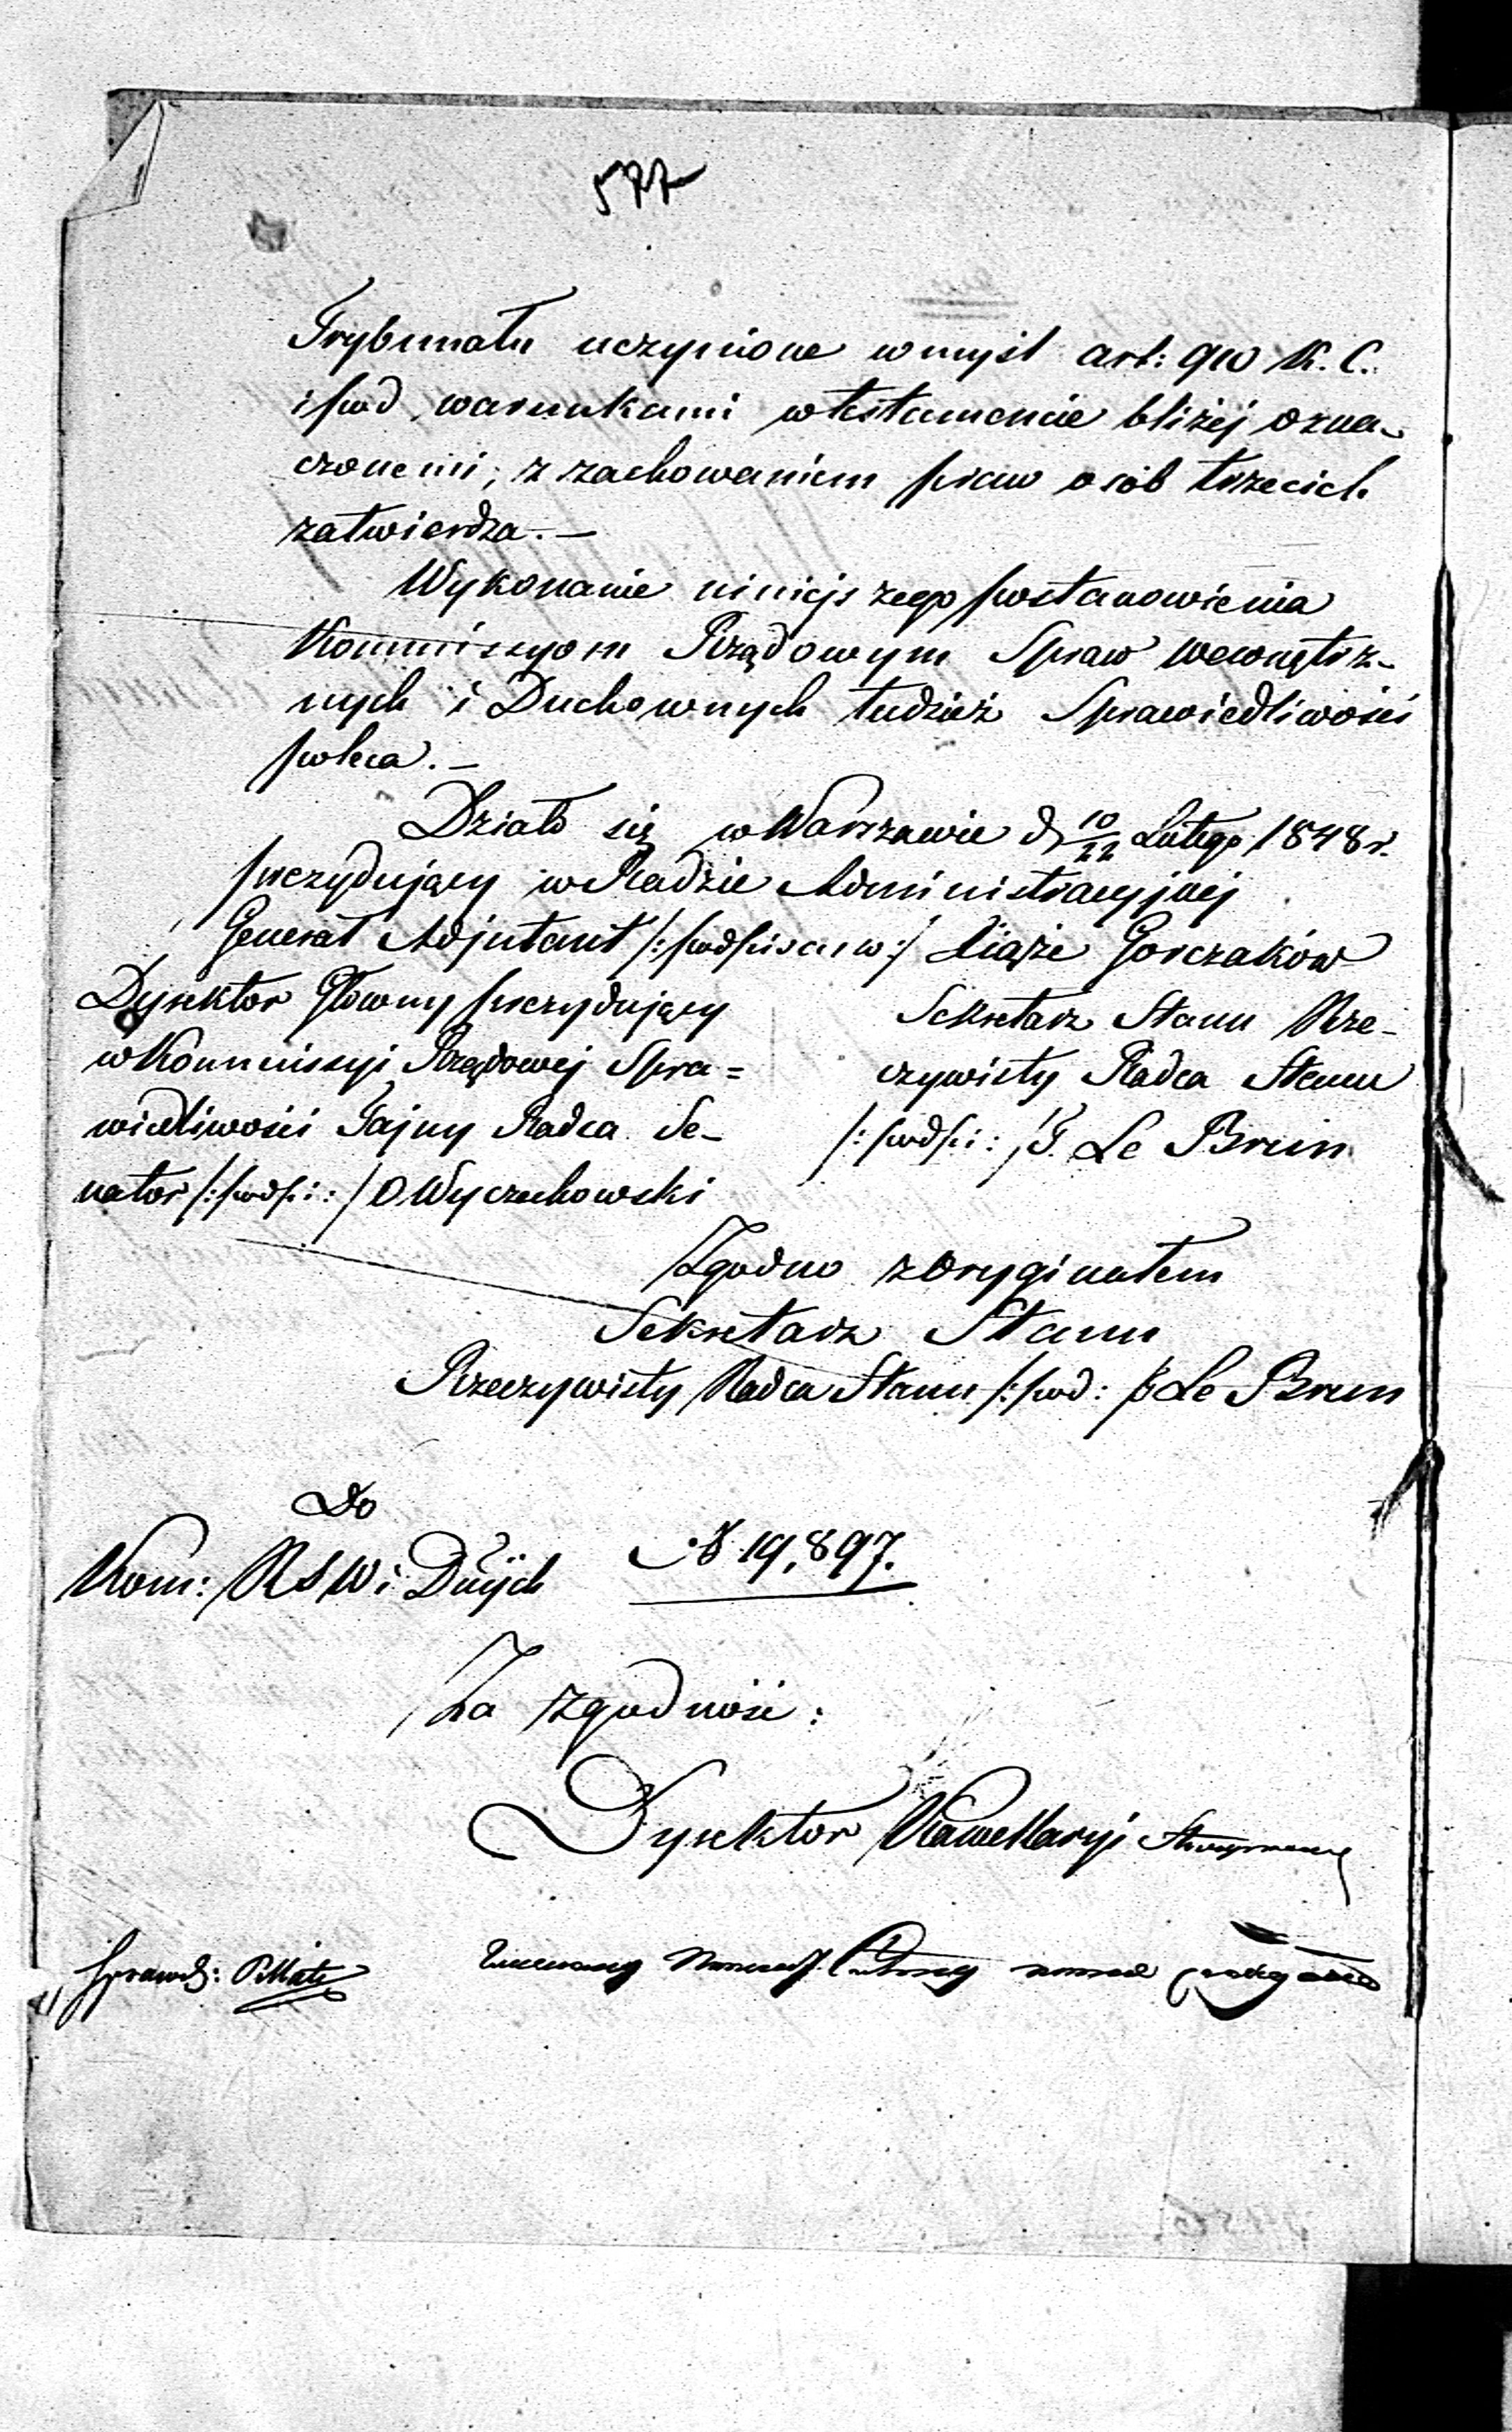 577
Trybunału uczynione w myśl art: 910 K. C.
i pod warunkami w testamencie bliżej ozna-
czonemi; z zachowaniem praw osób trzecich
zatwierdza. —
Wykonanie niniejszego postanowienia
Kommissyom Rządowym Spraw Wewnętrz-
nych i Duchownych tudzież Sprawiedliwości
poleca. —
Działo się w Warszawie d 10/22 Lutego 1848 r.
prezydujący w Radzie Administracyjnej
Generał Adjutant /: podpisano :/ Xiąże Gorczaków
Dyrektor Główny prezydujący
w Kommissyi Rządowej Spra=
wiedliwości Tajny Radca Se-
nator /: podpi: / O Wyczechowski
Sekretarz Stanu Rze-
czywisty Radca Stanu
/: podpi: / J. Le Brun
Zgodno z oryginałem
Sekretarz Stanu
Rzeczywisty Radca Stanu /: pod: / Le Brun
Do
Kom: R S W i Duych
№ 19,897.
Za zgodność:
Dyrektor Kancellaryi
Sprawdz: